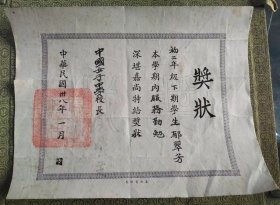 獎狀
初二年级下期學生鄢翠芳
本學期內服務勤勉
深堪嘉尚特給獎狀
中國女子中學校長
中華民國卅八年一月 日